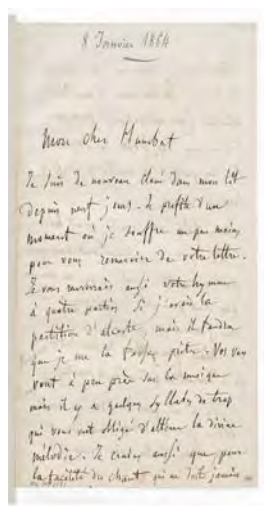 8 Janvier 1864
Mon cher Humbert
Je suis de nouveau cloué dans mon lit
depuis neuf jours. Je profite d'un
moment où je souffre un peu moins
pour vous remercier de votre lettre.
Je vous aussi votre hymne
à quatre parties si j'avais la
partition d'alceste, mais il faudra
que je me la fasse prêter. Vos vers
vont à peu près sur la musique
mais il y a quelques syllabes de trop
qui vous ont obligé d'altérer la divine
mélodie. Je crains aussi que pour
la facilité du chant qui ne doit jamais